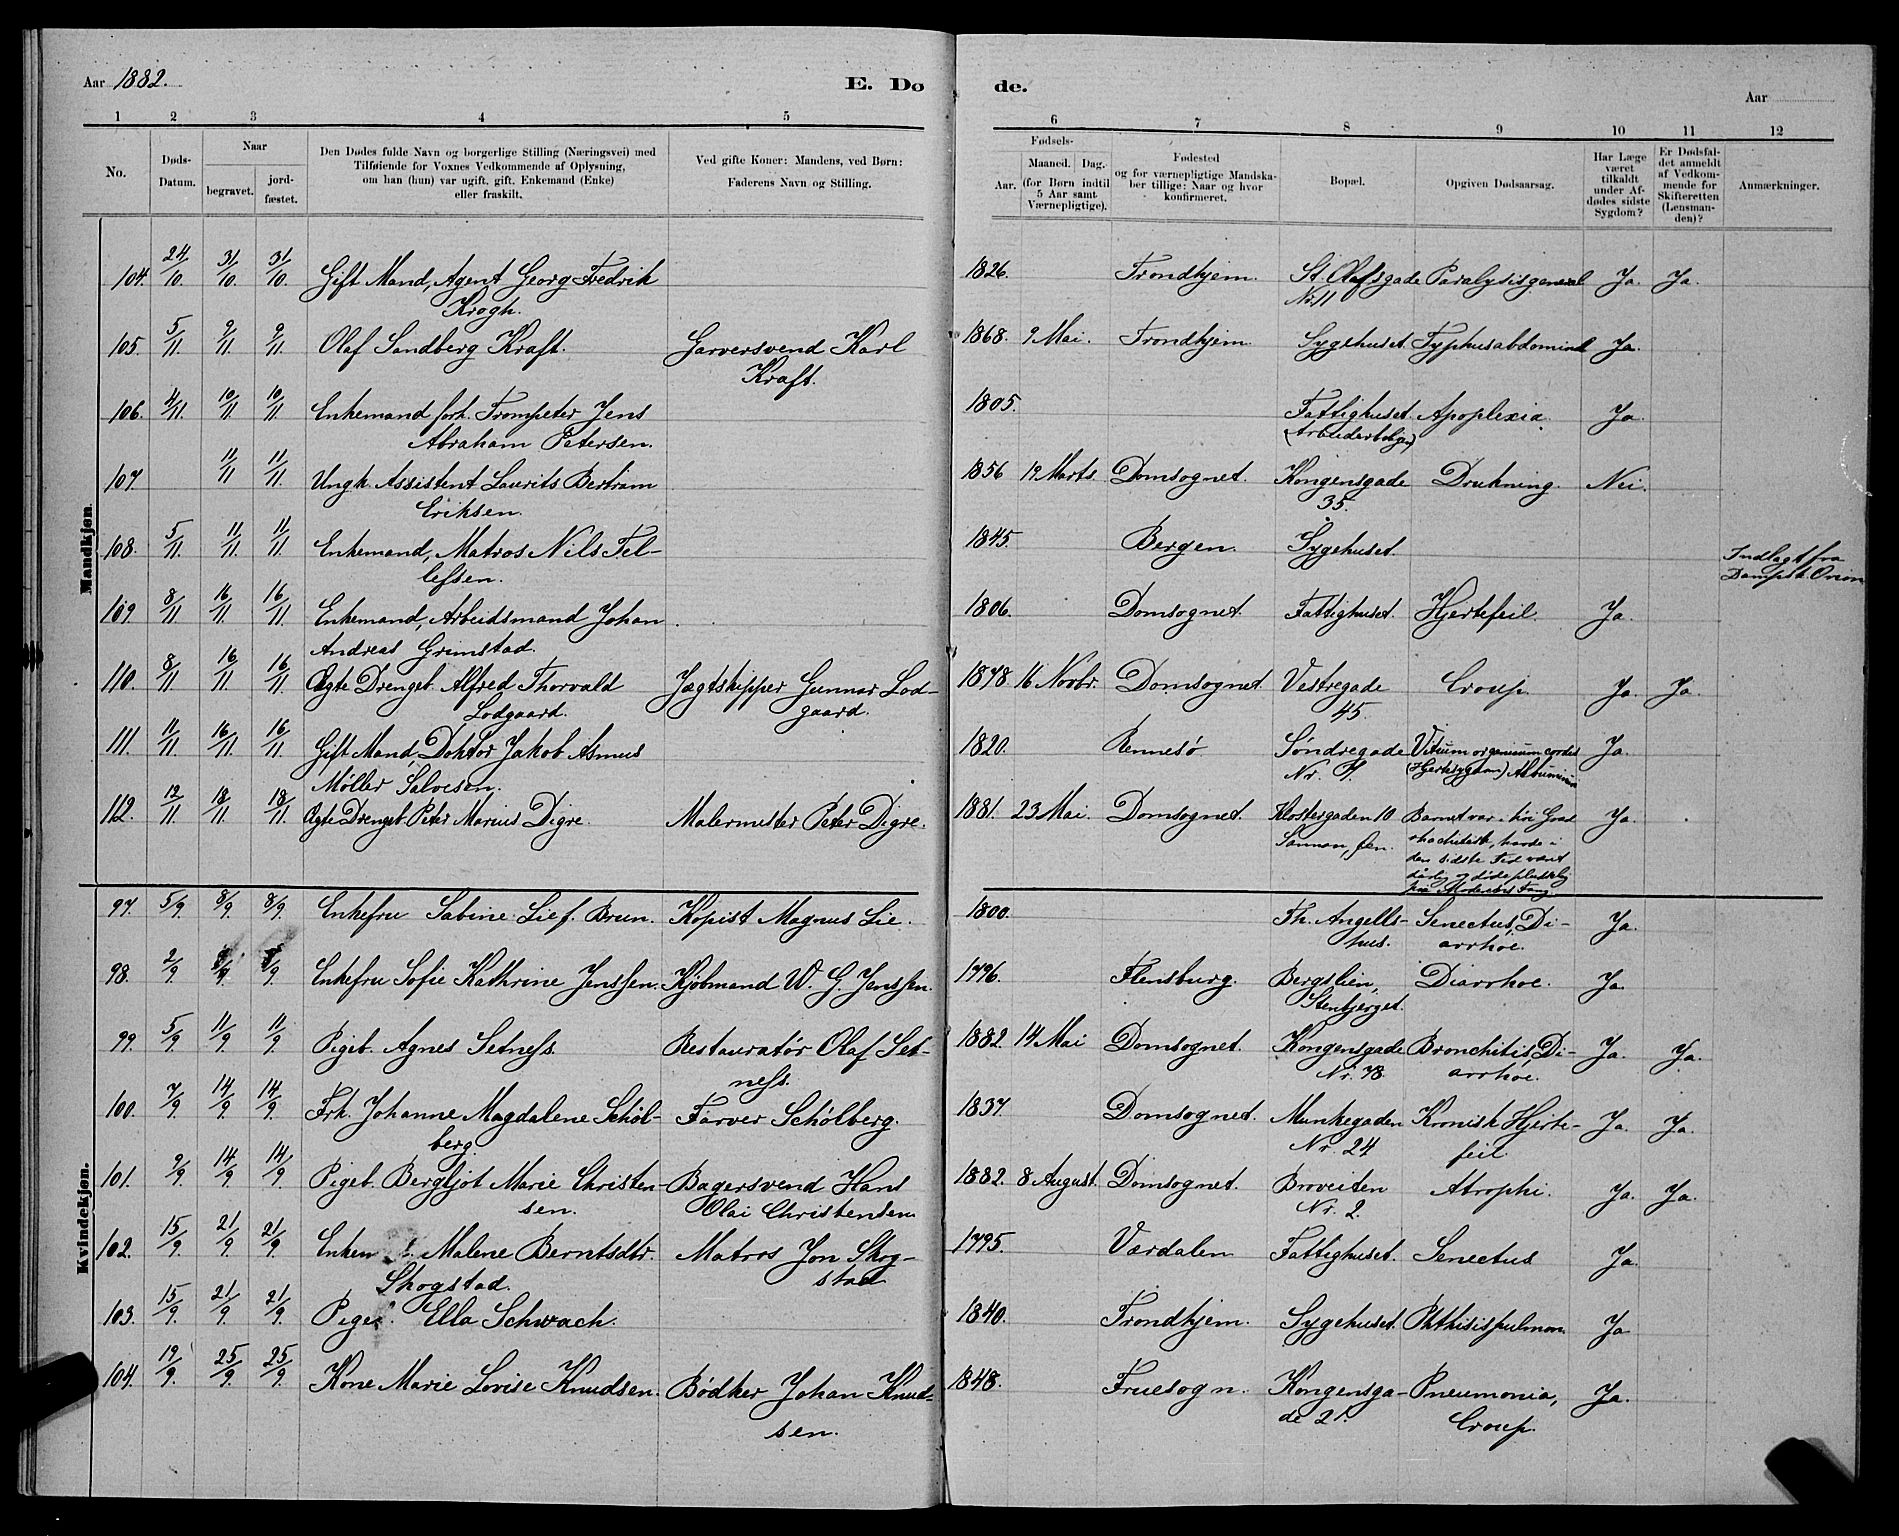 Aar 1882.
E. Dø
de.
Aar
1 2 3 4 5 6 7 8 9 10 11 12
No.
Døds-Datum.
Naar
begravet.
jord-fæstet.
Den Dødes fulde Navn og borgerlige Stilling (Næringsvei) med
Tilføiende for Voxnes Vedkommende af Oplysning,
om han (hun) var ugift, gift, Enkemand (Enke)
eller fraskilt.
Ved gifte Koner: Mandens, ved Børn:
Faderens Navn og Stilling.
Fødsels-
Aar.
Maaned. Dag.
(for Børn indtil
5 Aar samt
Værnepligtige).
Fødested
og for værnepligtige Mandska-
ber tillige: Naar og hvor
konfirmeret.
Bopæl.
Opgiven Dødsaarsag.
Har Læge
været
tilkaldt
under Af-
dødes sidste
Sygdom?
Er Dødsfal-
det anmeldt
af Vedkom-
mende for
Skifteretten
(Lensman-
den)?
Anmærkninger.
Mandkjøn.
104. 24/10. 31/10. 31/10. Gift Mand, Agent Georg Fredrik 1826. Trondhjem. St. Olafsgade Paralysis general Ja. Ja.
Krogh. Nr. 11
105. 5/11. 9/11. 9/11. Olaf Sandberg Kraft. Garversvend Karl 1868. 9 Mai. Trondhjem. Sygehuset. Typhus abdominal Ja.
Kraft.
106. 4/11. 10/11. 10/11. Enkemand forh. Trompeter Jens 1805. Fattighuset. Apoplexia. Ja.
Abraham Petersen.
107 11/11 11/11. Ungk. Assistent Laurits Bertram 1856 19 Marts. Domsognet. Kongensgade Drukning. Nei.
Eriksen. 35.
108. 5/11. 11/11. 11/11. Enkemand, Matros Nils Tel- 1845. Bergen. Sygehuset. Indlagt fra
lefsen. Dampsk. Orion
109. 8/11 16/11 16/11. Enkemand, Arbeidsmand Johan 1806. Domsognet Fattighuset. Hjertefeil. Ja.
Andreas Grimstad.
110. 8/11 16/11 16/11. Ægte Drengeb. Alfred Thorvald Jægtskipper Gunnar Lod- 1878 16 Novbr. Domsognet. Vestregade Croup. Ja. Ja.
Lodgaard. gaard. 45.
111. 11/11 16/11 16/11. Gift Mand, Doktor Jakob Asmus 1820. Rennesø Søndregade Vitium organicum cordis Ja.
Møller Salvesen. Nr. (Hjertesygdom)
112. 12/11 18/11 18/11. Ægte Drengeb. Peter Marius Digre. Malermester Peter Digre. 1881. 23 Mai. Domsognet. Klostergaden 10 Barnet var i høi Grad Ja.
Sannan, rhachitisk, havde i
den sidste Tid været
dårlig og døde pludselig
på Moderens Fang.
Kvindekjøn.
97. 5/9. 8/9. 8/9. Enkefru Sabine Lie f. Brun. Kopist Magnus Lie. 1800. Th. Angells- Senectus, Di- Ja.
hus. arrhoe.
98. 2/9. 8/9. 8/9. Enkefru Sofie Kathrine Jenssen. Kjøbmand W. G. Jenssen. 1796. Flensburg. Bergslien, Diarrhoe. Ja.
Stenbjerget.
99. 5/9. 11/9. 11/9. Pigeb. Agnes Setness. Restauratør Olaf Set- 1882. 14 Mai Domsognet. Kongensgade Bronchitis, Di- Ja. Ja.
ness. Nr. 78 arrhoe.
100. 7/9. 14/9. 14/9. Frk. Johanne Magdalene Schøl- Farver Schølberg. 1837. Domsognet. Munkegaden Kronisk Hjerte- Ja. Ja.
berg. Nr. 24 feil.
101. 9/9. 14/9. 14/9. Pigeb. Bergljot Marie Christen- Bagersvend Hans 1882. 8 August. Domsognet. Broveiten Atrophi. Ja. Ja.
sen. Olai Christensen Nr. 2.
102. 15/9. 21/9. 21/9. Malene Berntsdtr. Matros Jon Skog- 1795. Værdalen Fattighuset. Senectus Ja.
Skogstad. stad
103. 15/9. 21/9. 21/9. Ella Schwach. 1840. Trondhjem. Sygehuset. Phthisis pulmon. Ja
104. 19/9. 25/9. 25/9. Kone Marie Lovise Knudsen. Bødker Johan Knud- 1848. Fruesogn. Kongensga- Pneumonia, Ja.
sen. de 21. Croup.